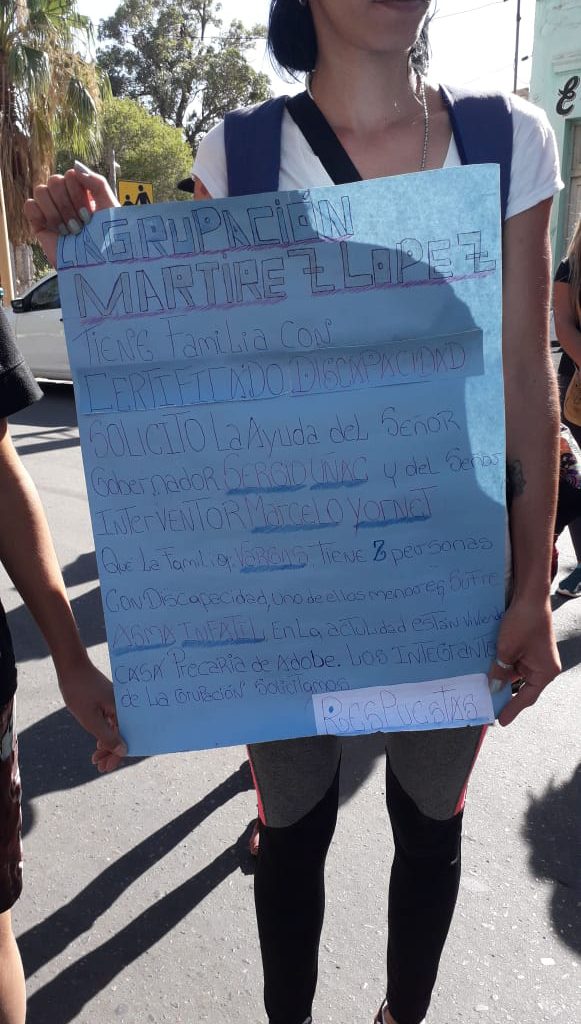 LAGRUPACIÓN
MARTIREZ LOPEZ
TIENE Familia CON
CERTIFICADO DISCAPACIDAD
SOLICITO La Ayuda del SEÑOR
Gobernador SERGIO UÑAC y del Señor
INTERVENTOR Marcelo Yornet
Que La Familia VARGAS TIENE 2 personas
Con Discapacidad, uno de ellos menor es SUFRE
ASMA INFATIL. En La actulidad están viviendo
CASA Precaria de Adobe. LOS INTEGRANTE
de La Grupación Solicitamos
Respuestas